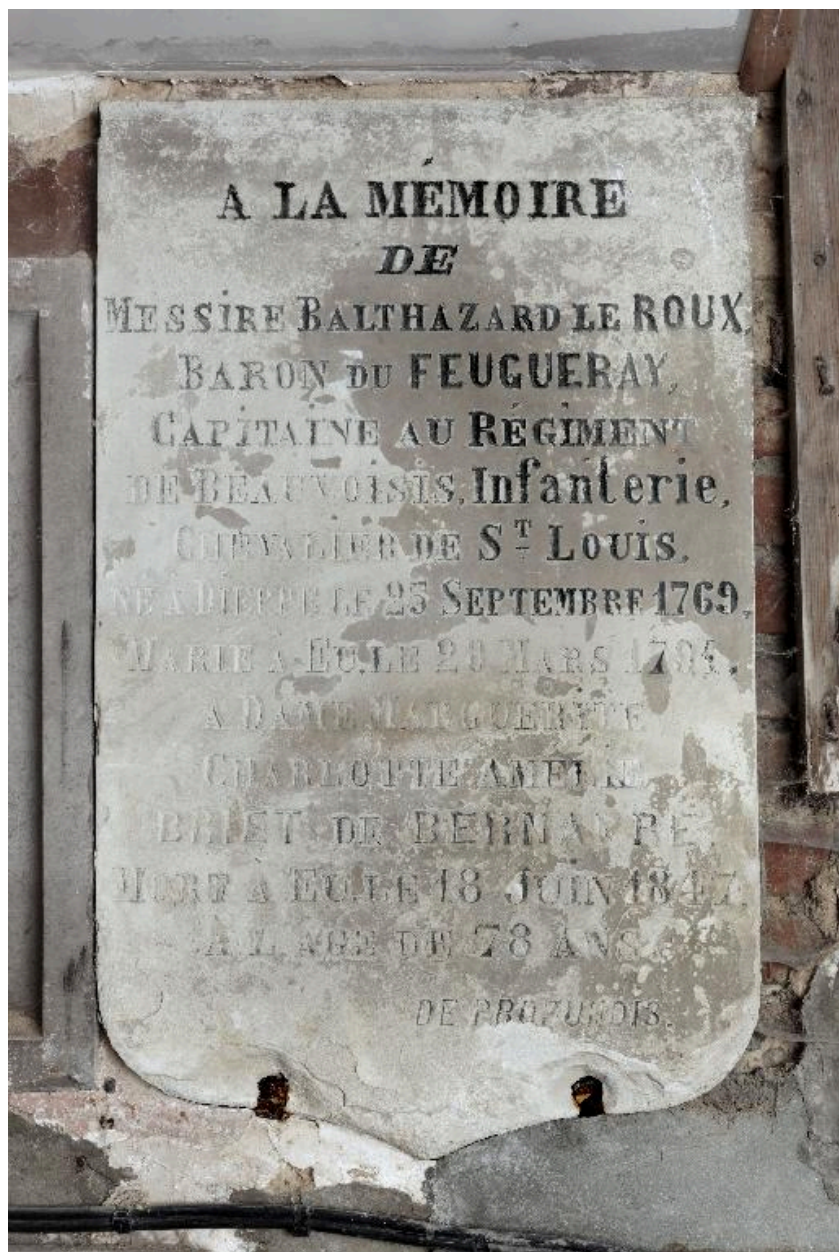 A LA MÉMOIRE
DE
MESSIRE BALTHAZARD LE ROUX,
BARON DU FEUGUERAY,
CAPITAINE AU RÉGIMENT
DE BEAUVOISIS, Infanterie,
CHEVALIER DE ST LOUIS.
NÉ A DIEPPE LE 25 SEPTEMBRE 1769,
MARIÉ A EU, LE 29 MARS 1791,
A DAME MARGUERITE
CHARLOTTE AMELIE
BRIET DE BERNAPRE
MORT À EU, LE 18 JUIN 1847.
A L'AGE DE 78 ANS.
DE PROFUNDIS.